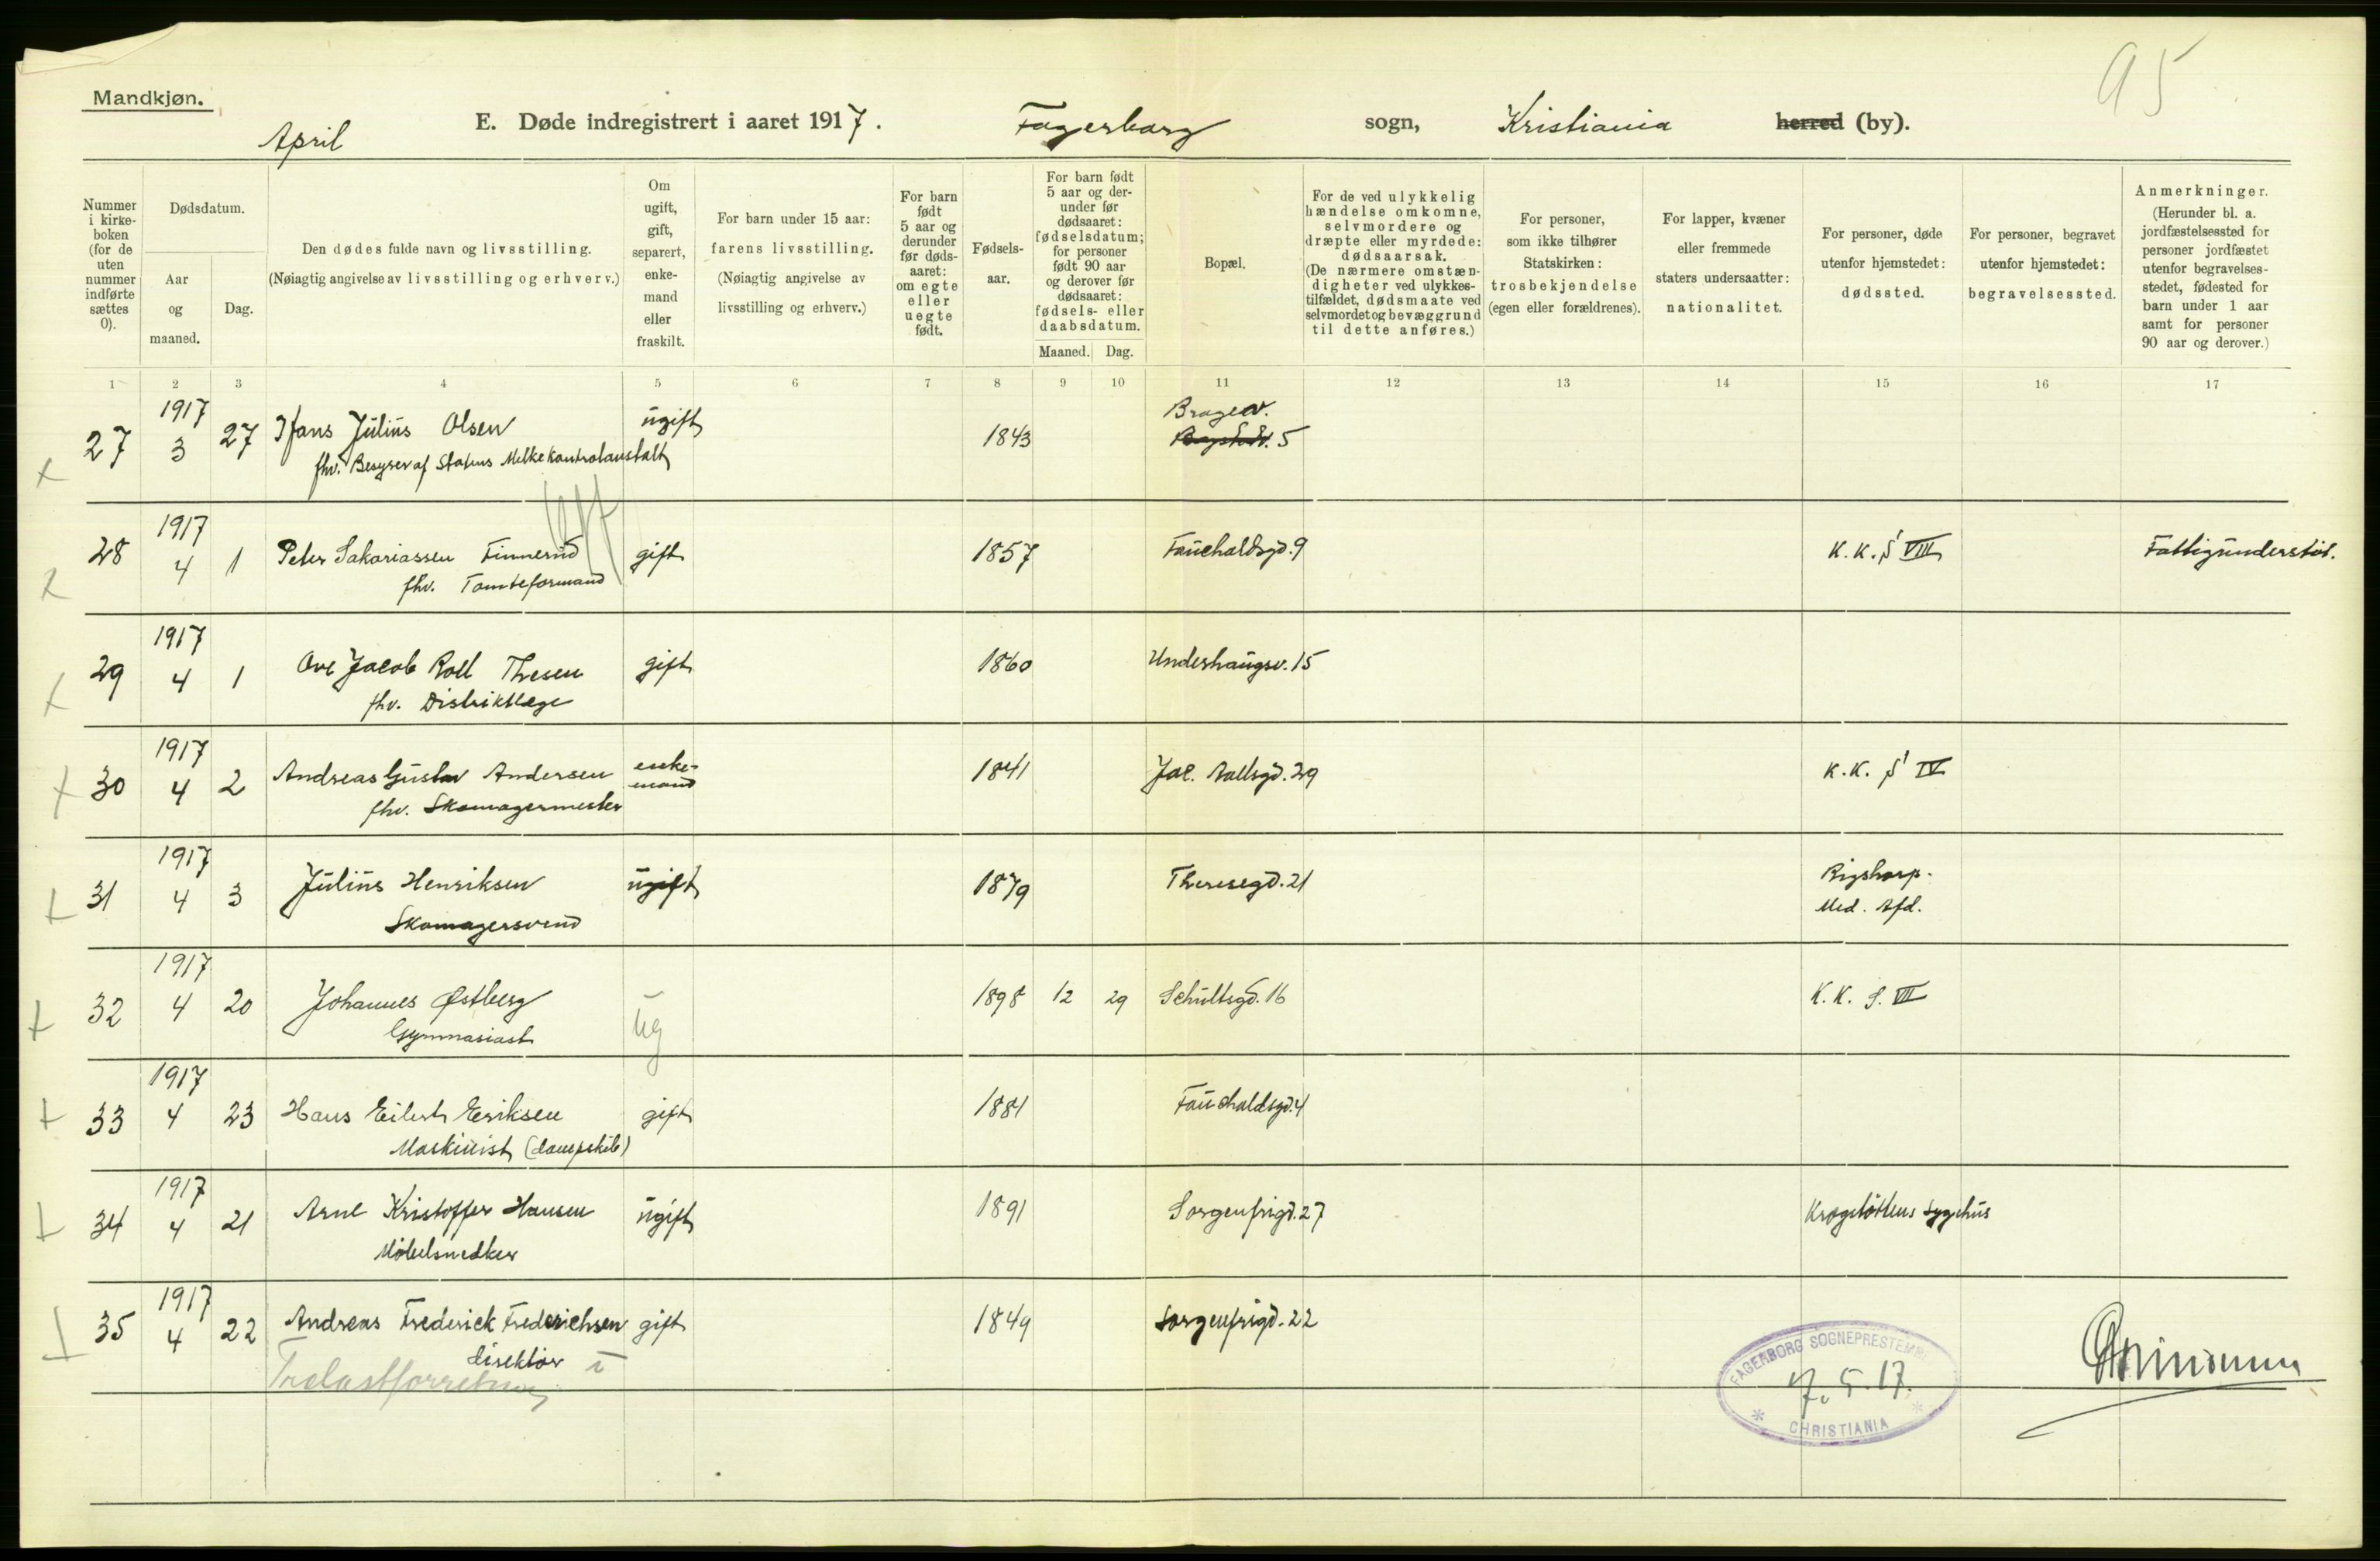 95
Mandkjøn.
April
E. Døde indregistrert i aaret 1917. Fagerborg sogn, Kristiania herred (by).
Nummer i kirke-boken (for de uten nummer indførte sættes 0).
Dødsdatum.
Aar og maaned.
Dag.
Den dødes fulde navn og livsstilling.
(Nøiagtig angivelse av livsstilling og erhverv.)
Om ugift, gift, separert, enke-mand eller fraskilt.
For barn under 15 aar:
farens livsstilling.
(Nøiagtig angivelse av livsstilling og erhverv.)
For barn født 5 aar og derunder før døds-aaret: om egte eller uegte født.
Fødsels-aar.
For barn født 5 aar og der-under før dødsaaret: fødselsdatum; for personer født 90 aar og derover før dødsaaret: fødsels- eller daabsdatum.
Maaned. Dag.
Bopæl.
For de ved ulykkelig hændelse omkomne, selvmordere og dræpte eller myrdede: dødsaarsak.
(De nærmere omstæn-digheter ved ulykkes-tilfældet, dødsmaate ved selvmordet og bevæggrund til dette anføres.)
For personer, som ikke tilhører Statskirken: trosbekjendelse (egen eller forældrenes).
For lapper, kvæner eller fremmede staters undersaatter: nationalitet.
For personer, døde utenfor hjemstedet: dødssted.
For personer, begravet utenfor hjemstedet: begravelsessted.
Anmerkninger.
(Herunder bl. a. jordfæstelsessted for personer jordfæstet utenfor begravelses-stedet, fødested for barn under 1 aar samt for personer 90 aar og derover.)
1 2 3 4 5 6 7 8 9 10 11 12 13 14 15 16 17
27 1917 3 27 Hans Julius Olsen ugift 1843 Bragev. 5
fhv. Bestyrer af Statens Melkekontrolanstalt
28 1917 4 1 Peter Sakariassen Finnerud gift 1857 Fauchaldsgd. 9 K.K.S VIII Fattigunderstøt.
fhv. Tomteformand
29 1917 4 1 Ove Jacob Roll Thesen gift 1860 Underhaugsv. 15
fhv. Distriktlæge
30 1917 4 2 Andreas Gustav Andersen enke-mand 1841 Jac. Aallsgd. 29 K.K. S IV
fhv. Skomagermester
31 1917 4 3 Julius Henriksen ugift 1879 Theresegd. 21 Rigshosp. Med. Afd.
Skomagersvend
32 1917 4 20 Johannes Østberg ug 1898 12 29 Schultsgd. 16 K.K. S. VII
Gymnasiast
33 1917 4 23 Hans Eilert Eriksen gift 1881 Fauchaldsgd. 4
Maskinist (dampskib)
34 1917 4 21 Arne Kristoffer Hansen ugift 1891 Sorgenfrigd. 27 Krogstøttens sygehus
Møbelsnedker
35 1917 4 22 Andreas Frederick Frederichsen gift 1849 Sorgenfrigd. 22
direktør i
Trælastforretning
FAGERBORG SOGNEPRESTEMB.
7.5.17.
CHRISTIANIA